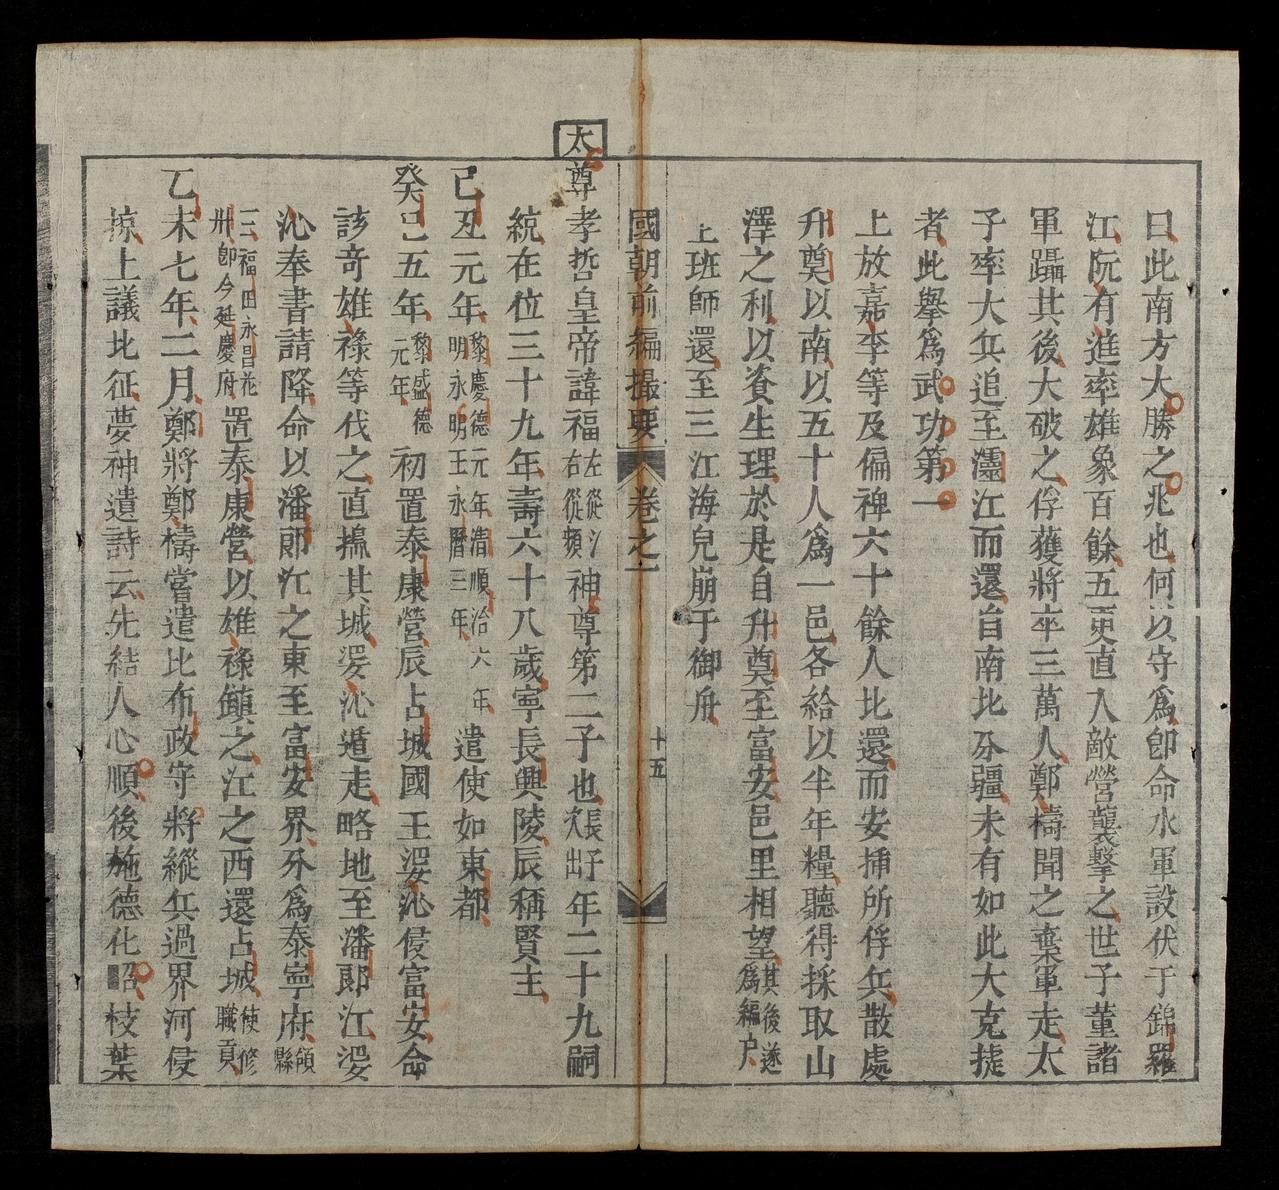 曰此南方大勝之兆也何以守爲卽命水軍設伏于錦羅
江阮有進率雄象百餘五更直入敵營襲擊之世子董諸
軍躡其後大破之俘獲將卒三萬人鄭檮聞之棄軍走太
子率大兵追至𤅷江而還自南北分疆未有如此大克捷
者此舉爲武功第一
上放嘉李等及偏裨六十餘人北還而安揷所俘兵散處
升奠以南以五十人爲一邑各給以半年糧聽得採取山
澤之利以資生理於是自升奠至富安邑里相望其後遂爲編户
上班師還至三江海兒崩于御舟
國朝前編撮要 卷之一 十五
太尊孝哲皇帝諱福左從氵右從頻神尊第二子也長子次出年二十九嗣
統在位三十九年壽六十八歲寧長興陵辰稱賢主
己丑元年黎慶德元年清順治六年明永明王永曆三年遣使如東都
癸巳五年黎盛德元年初置泰康營辰占城國王婆沁侵富安命
該奇雄祿等伐之直搗其城婆沁遁走略地至潘郎江婆
沁奉書請降命以潘郎江之東至富安界分爲泰寧府領縣
三福田永昌花卅卽今延慶府置泰康營以雄祿鎮之江之西還占城使修職貢
乙未七年二月鄭將鄭檮嘗遣北布政守將縱兵過界河侵
掠上議北征夢神遺詩云先結人心順後施德化昭枝葉